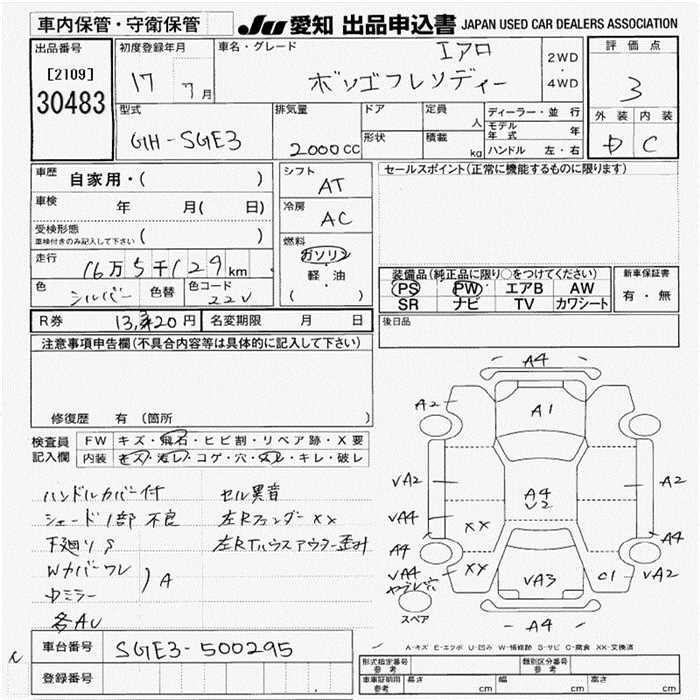 車内保管・守衛保管
JU 愛知 出品申込書 JAPAN USED CAR DEALERS ASSOCIATION
出品番号
[2109]
30483
初度登録年月
17 7月
車名・グレード
エアロ
ボンゴフレンディー
2WD
・
4WD
評価点
3
外装 内装
D C
型式
GH-SGE3
排気量
2000cc
ドア
形状
定員
人
積載
kg
ディーラー・並行
モデル年式 年
ハンドル 左・右
車歴
自家用・( )
車検
年 月( 日)
受検形態
車検付きのみ記入して下さい ( )
走行
16万5千129km
色
シルバー
色替
色コード
22V
シフト
AT
冷房
AC
燃料
ガソリン
軽・油
( )
セールスポイント(正常に機能するものに限ります)
装備品(純正品に限り○をつけてください)
PS PW エアB AW
SR ナビ TV カワシート
新車保証書
有・無
R券 13,320円
名変期限 月 日
後日品
注意事項申告欄(不具合内容等は具体的に記入して下さい)
修復歴 有(箇所 )
検査員
記入欄
FW キズ・飛石・ヒビ割・リペア跡・X要
内装 キズ・汚レ・コゲ・穴・スレ・キレ・破レ
ハンドルカバー付 セル異音
シェード1部不良 左Rフェンダーxx
下廻りS 左RTハウスアウター歪み
Wカバーワレ
ミラー ) A
各AU
A4
A2 A1
VA2 A2
A4
V2
VA4 XX A4
A4
VA4 XX VA3 C1 VA2
ヤブレ穴
スペア
A4
A-キズ E-エクボ U-凹み W-補修跡 S-サビ C-腐食 XX-交換済
車台番号 SGE3-500295
登録番号
形式指定番号
参考
類別区分番号
参考
車車証明用
参考
長さ cm 幅 cm 高さ cm